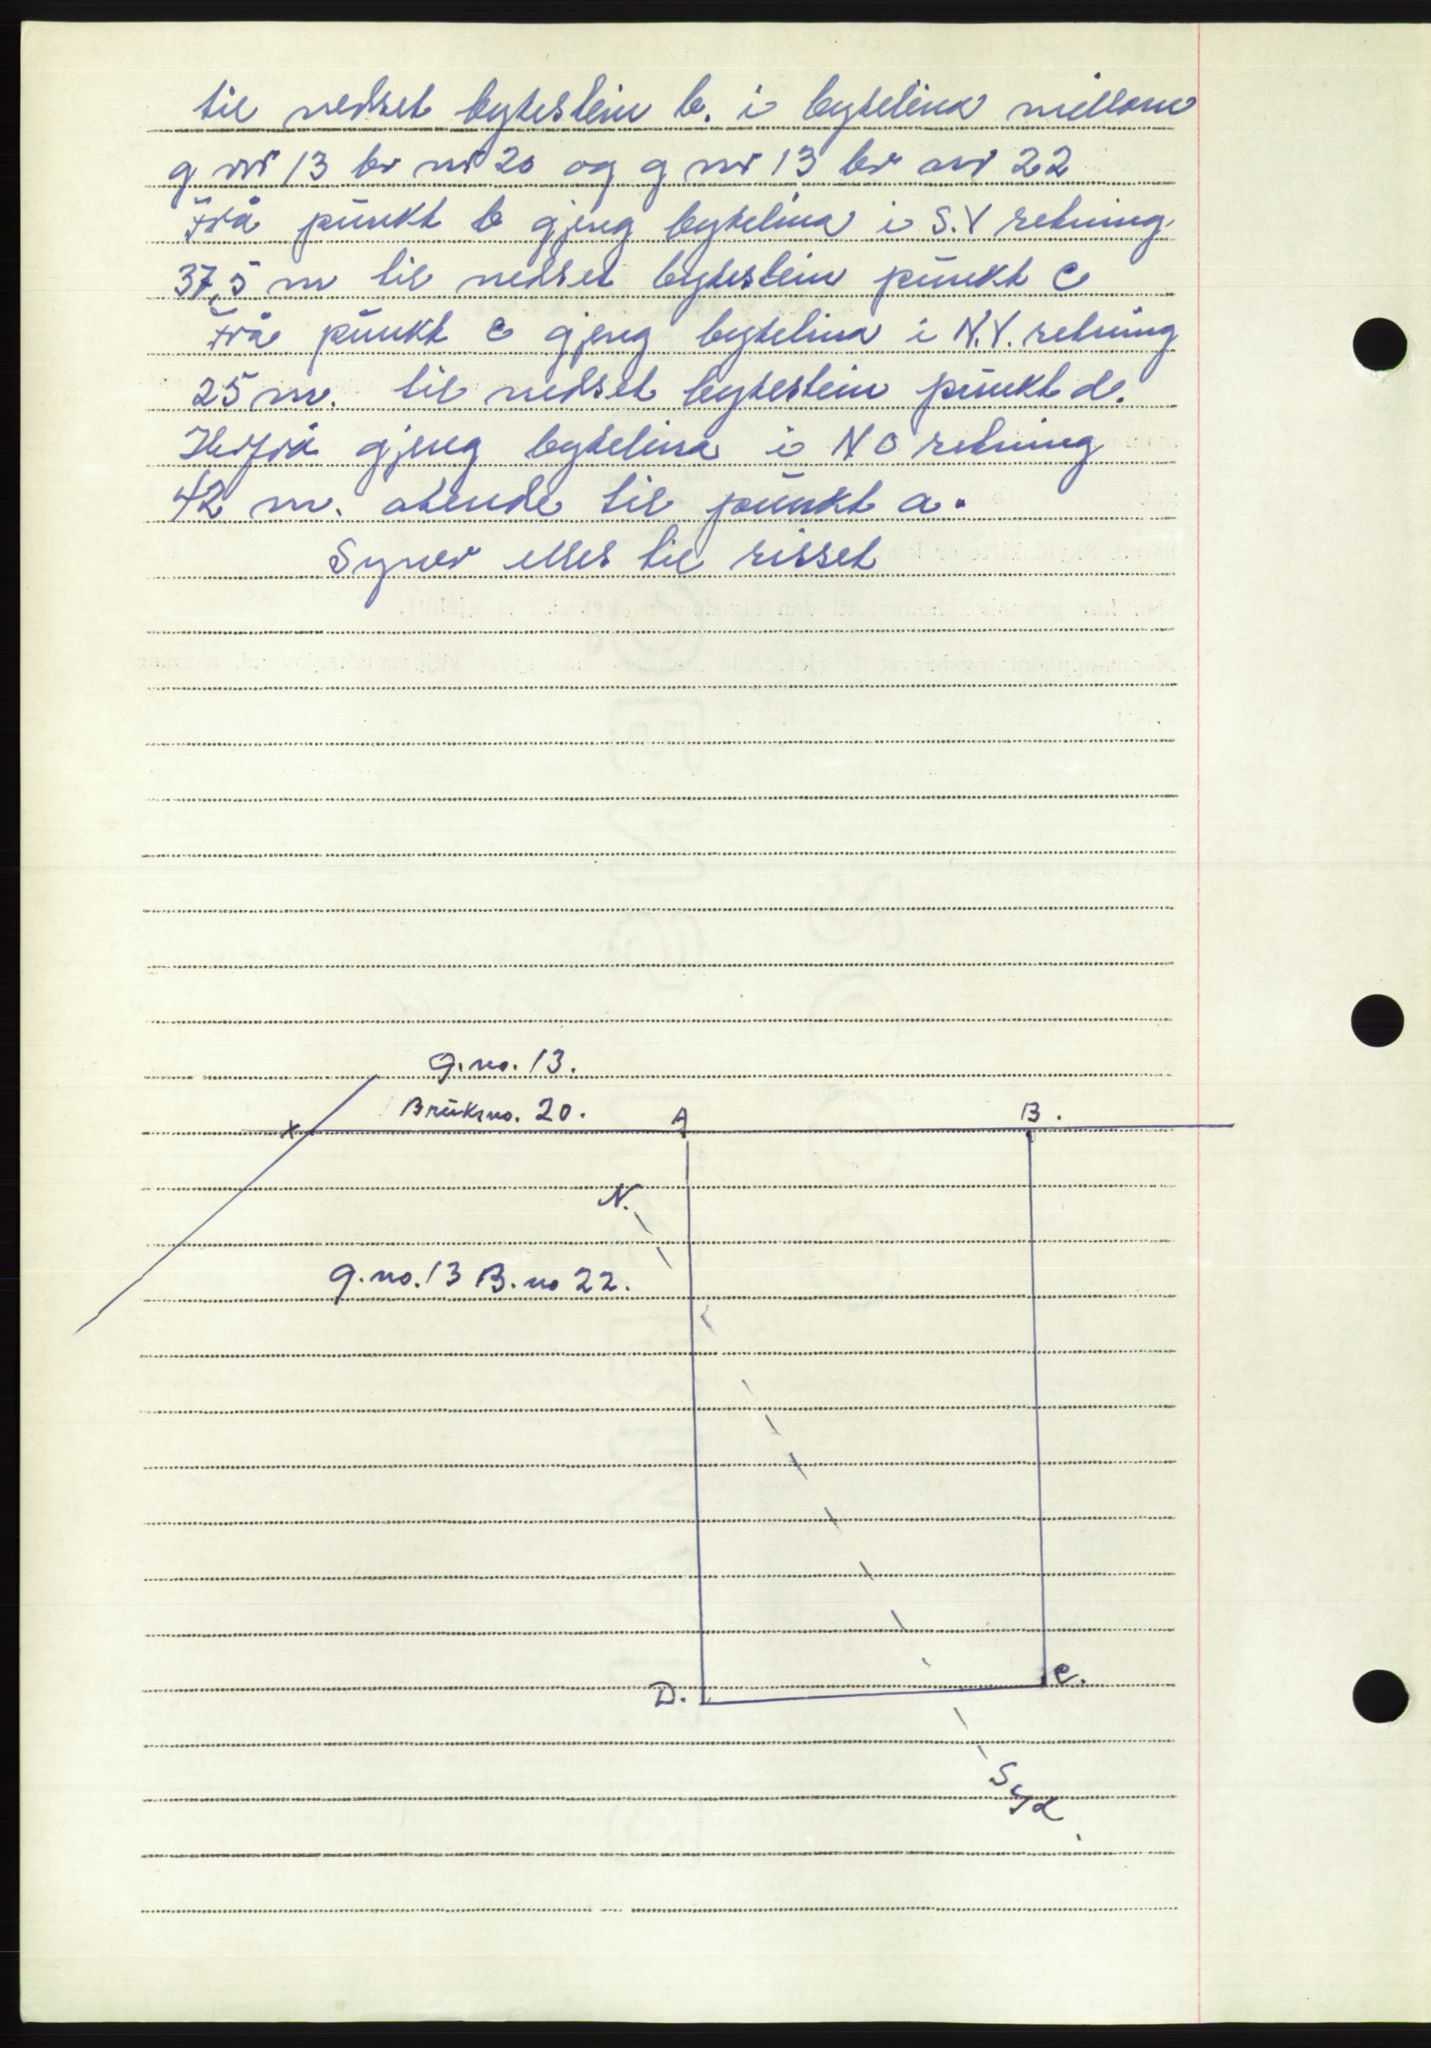 til nedset bytestein b. i bytelina millom
g nr 13 br nr 20 og g nr 13 br nr 22
Frå punkt b gjeng bytelina i S.V retning
37,5 m til nedset bytestein punkt C
Frå punkt c gjeng bytelina i N.V. retning
25 m. til nedset bytestein punkt d.
Herfrå gjeng bytelina i N O retning
42 m. atende til punkt a.
Syner elles til risset
g. no. 13.
Bruksno. 20.
A
B.
x
N.
g. no. 13 B. no 22.
D.
C.
Syd.